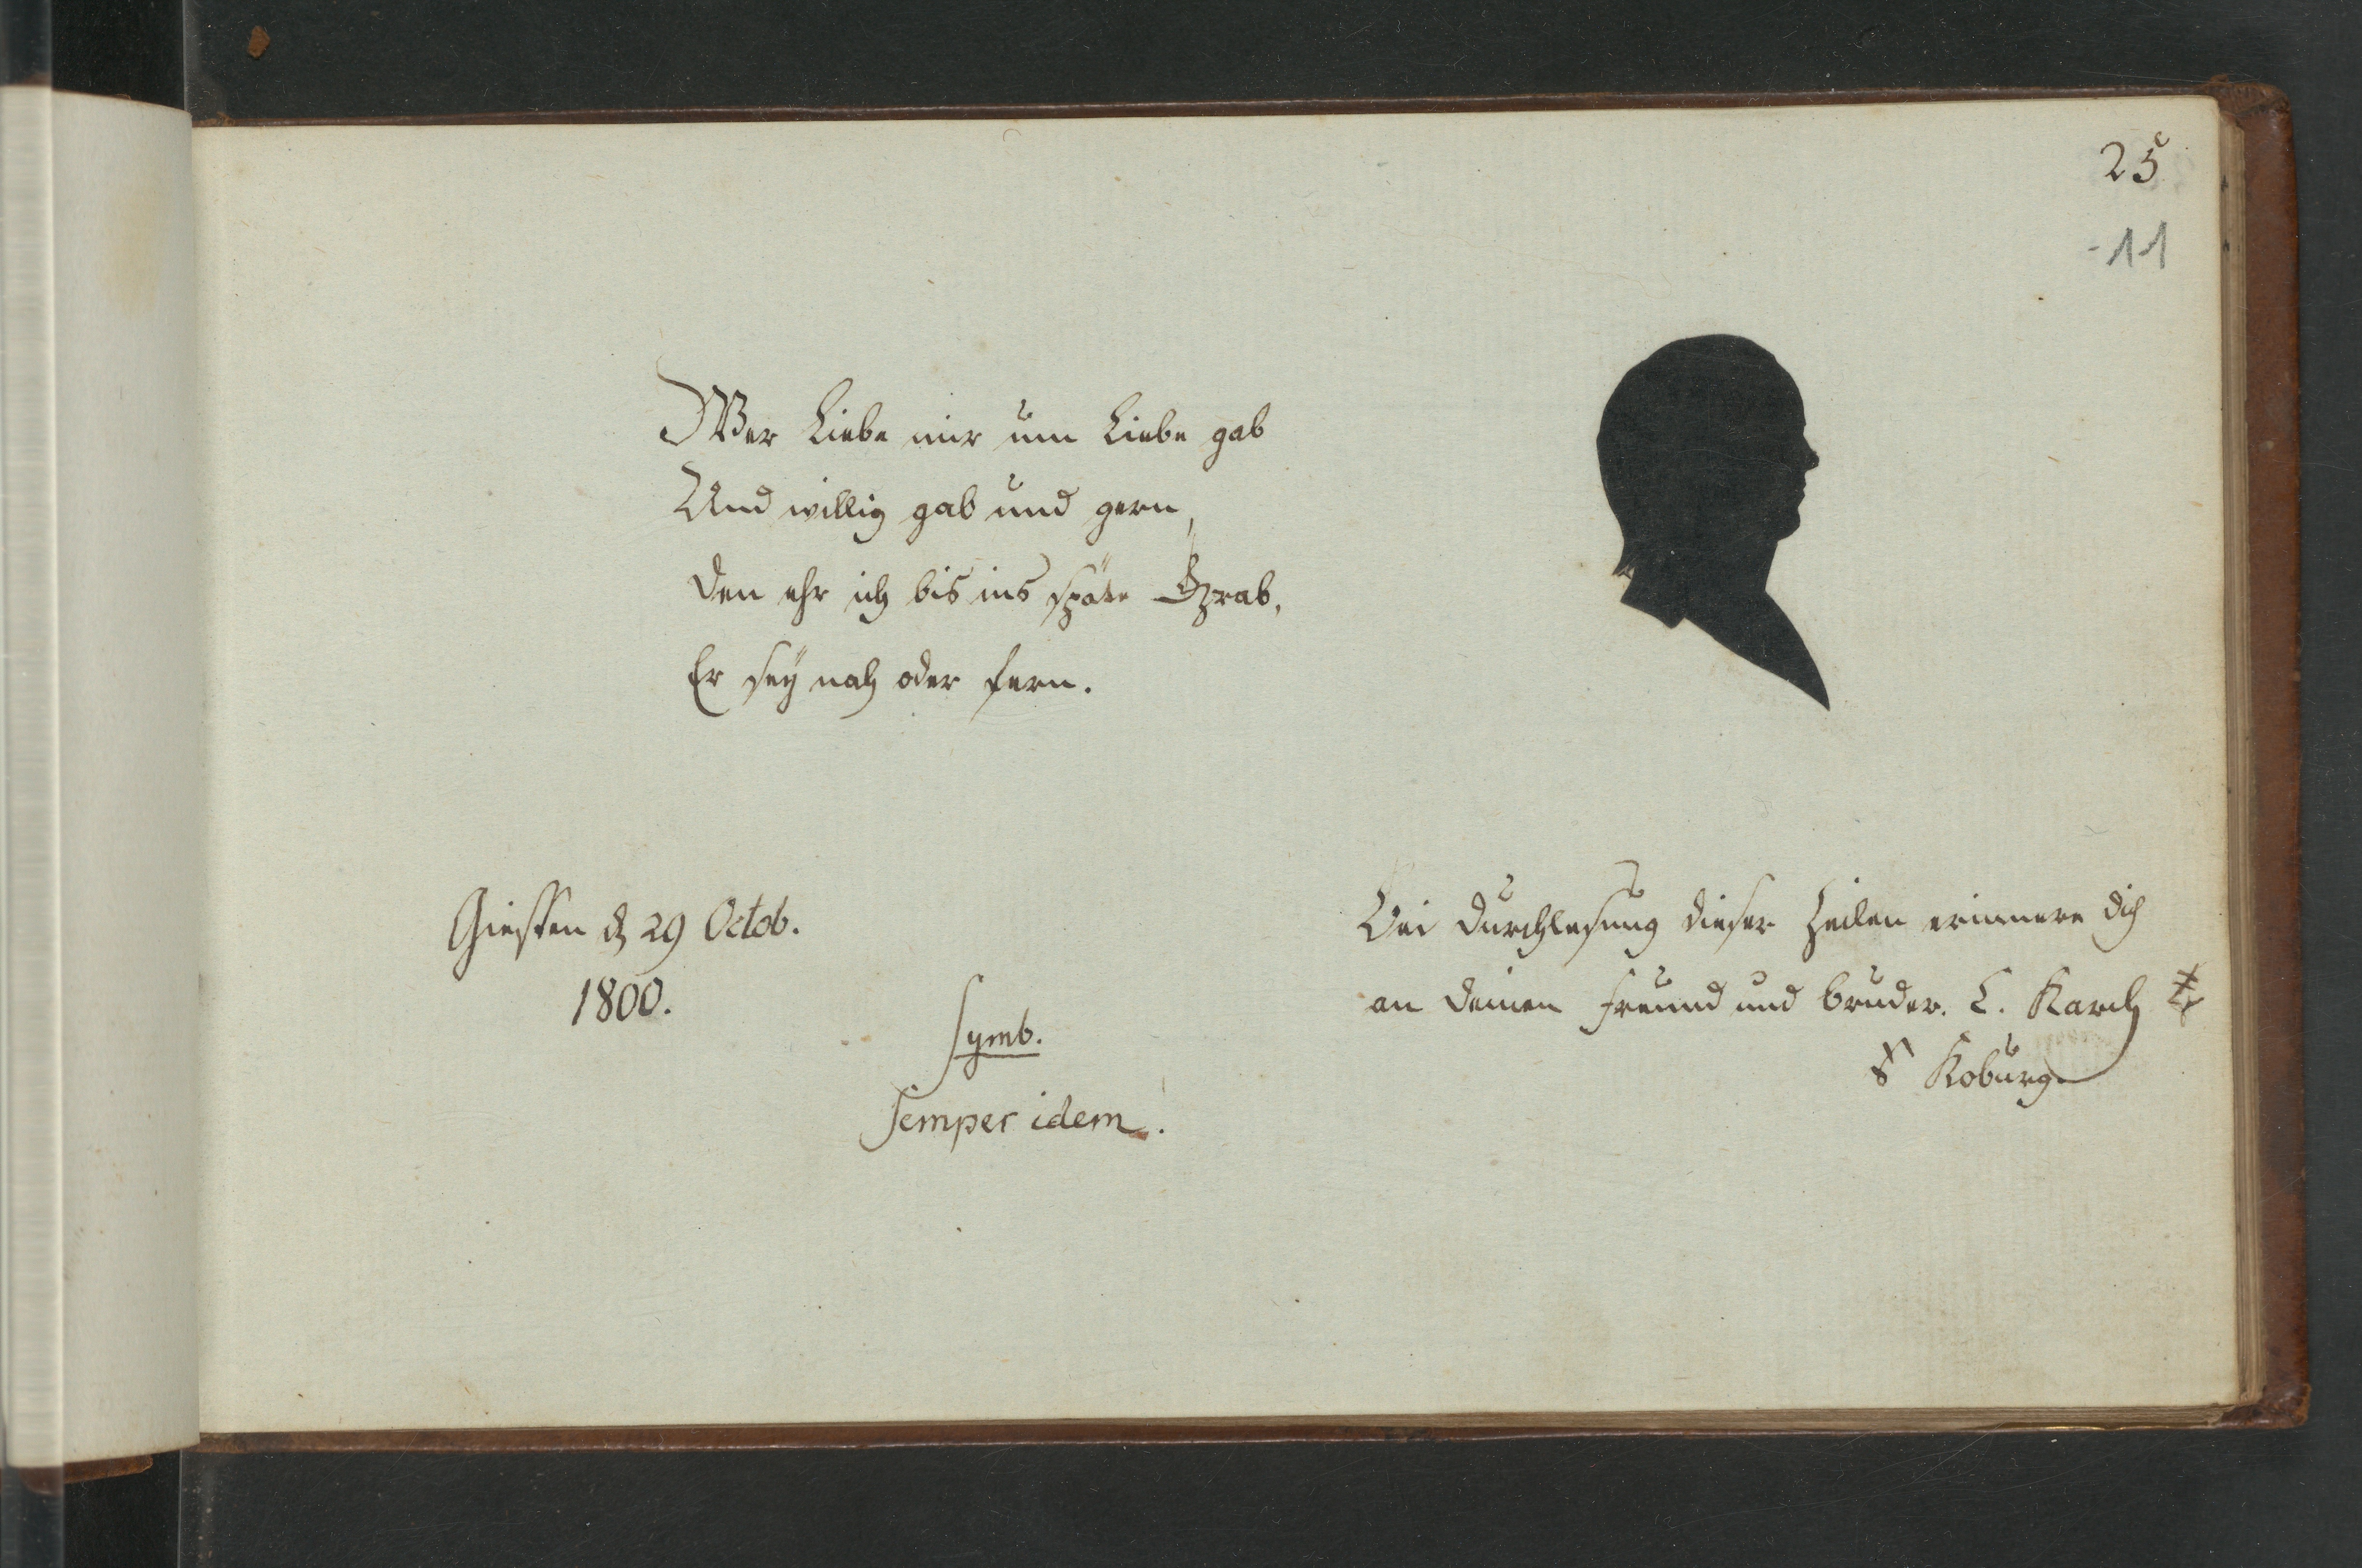 25
11
Wer Liebe mir um Liebe gab
Und willig gab und gern,
den ehr ich bis ins späte Grab,
Er sey nah oder fern.
Giessen d 29 Octob.
1800.
Symb.
Semper idem.
Bei Durchlesung dieser Zeilen erinnere dich
an deinen Freund und Bruder. C. Karch
Koburg